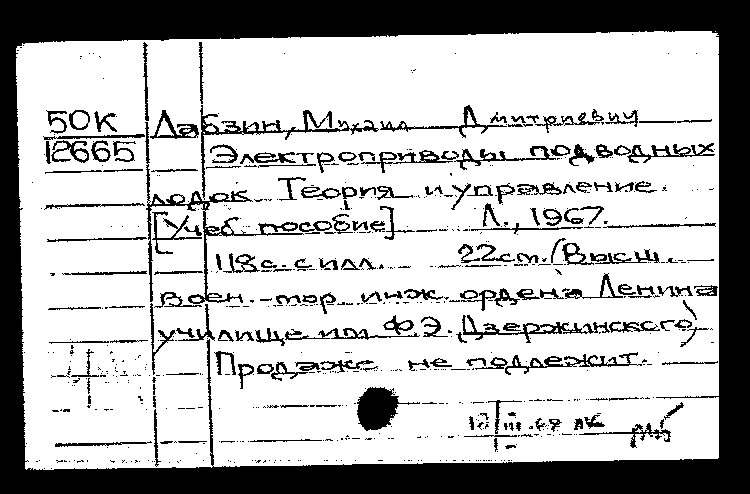 50К Лабзин, Михаил Дмитриевич
12665 Электроприводы подводных
лодок Теория и управление.
[Учеб. пособие] Л., 1967.
118 с. с илл. 22 см. (Высш.
воен.-мор. инж. ордена Ленина
училище им Ф.Э. Дзержинского)
Продаже не подлежит.
III.68